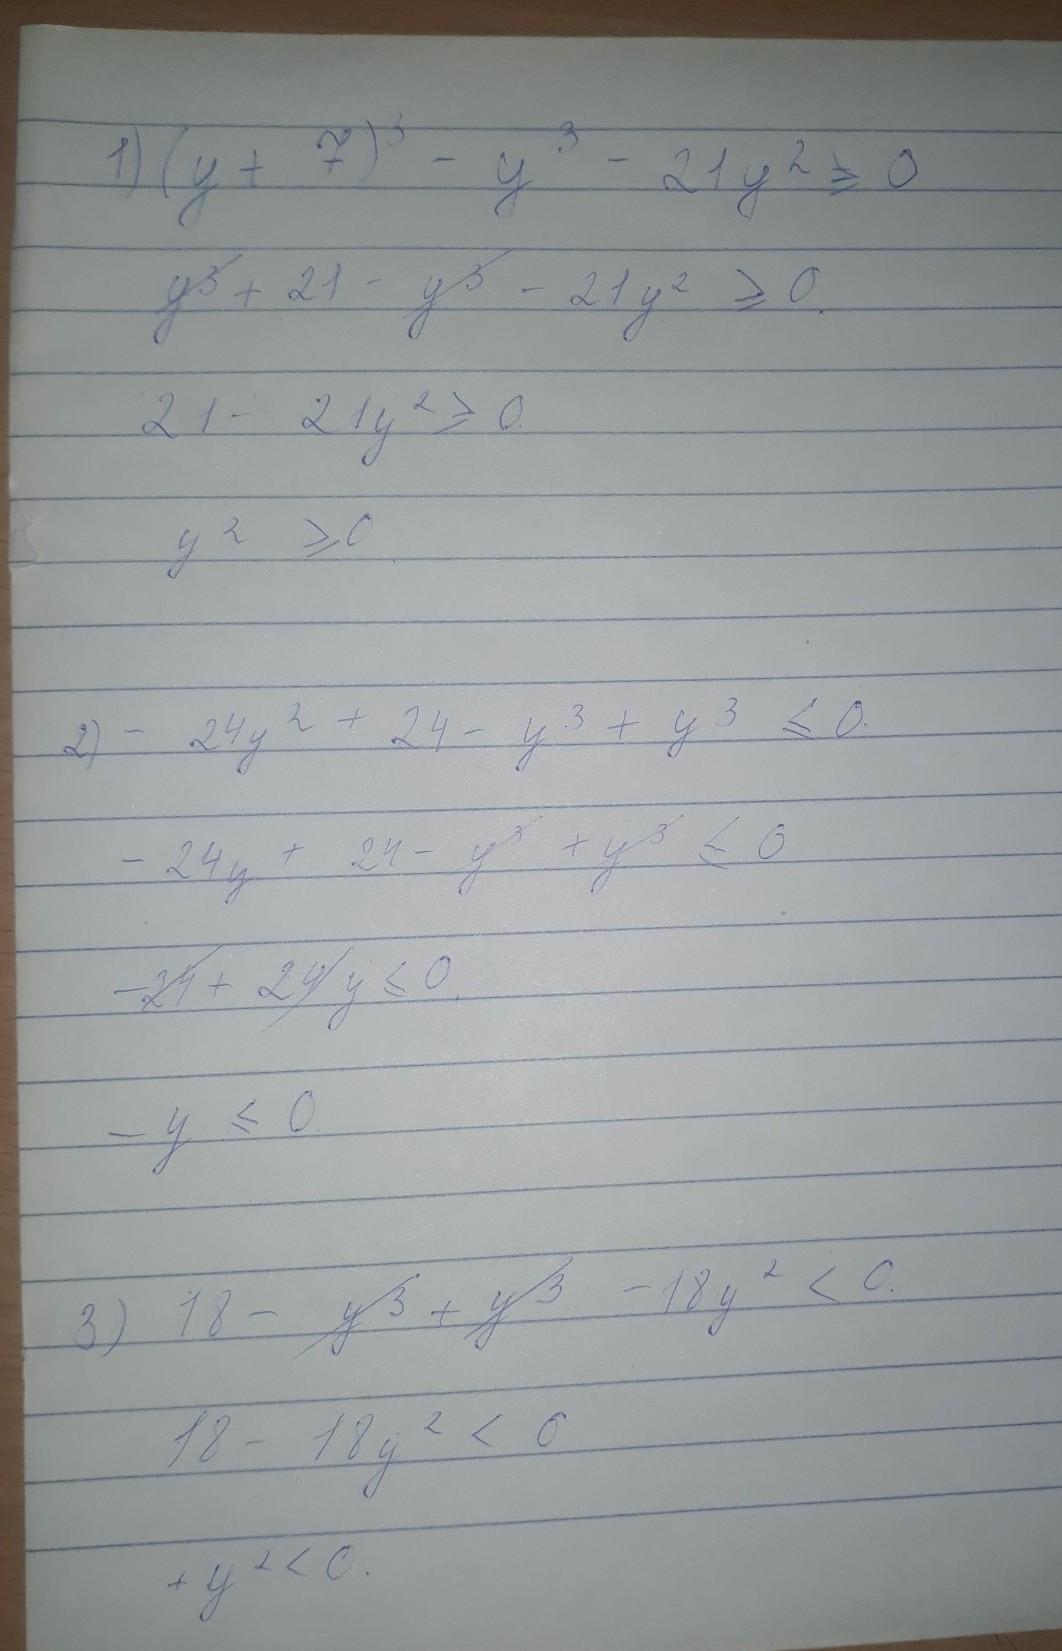 1) (y + 7)³ - y³ - 21y² ≥ 0
y³ + 21 - y³ - 21y² ≥ 0.
21 - 21y² ≥ 0.
y² ≥ 0.
2) - 24y² + 24 - y³ + y³ ≤ 0.
- 24y + 24 - y³ + y³ ≤ 0
- 24 + 24 y ≤ 0.
- y ≤ 0.
3) 18 - y³ + y³ - 18y² < 0.
18 - 18y² < 0
+ y² < 0.